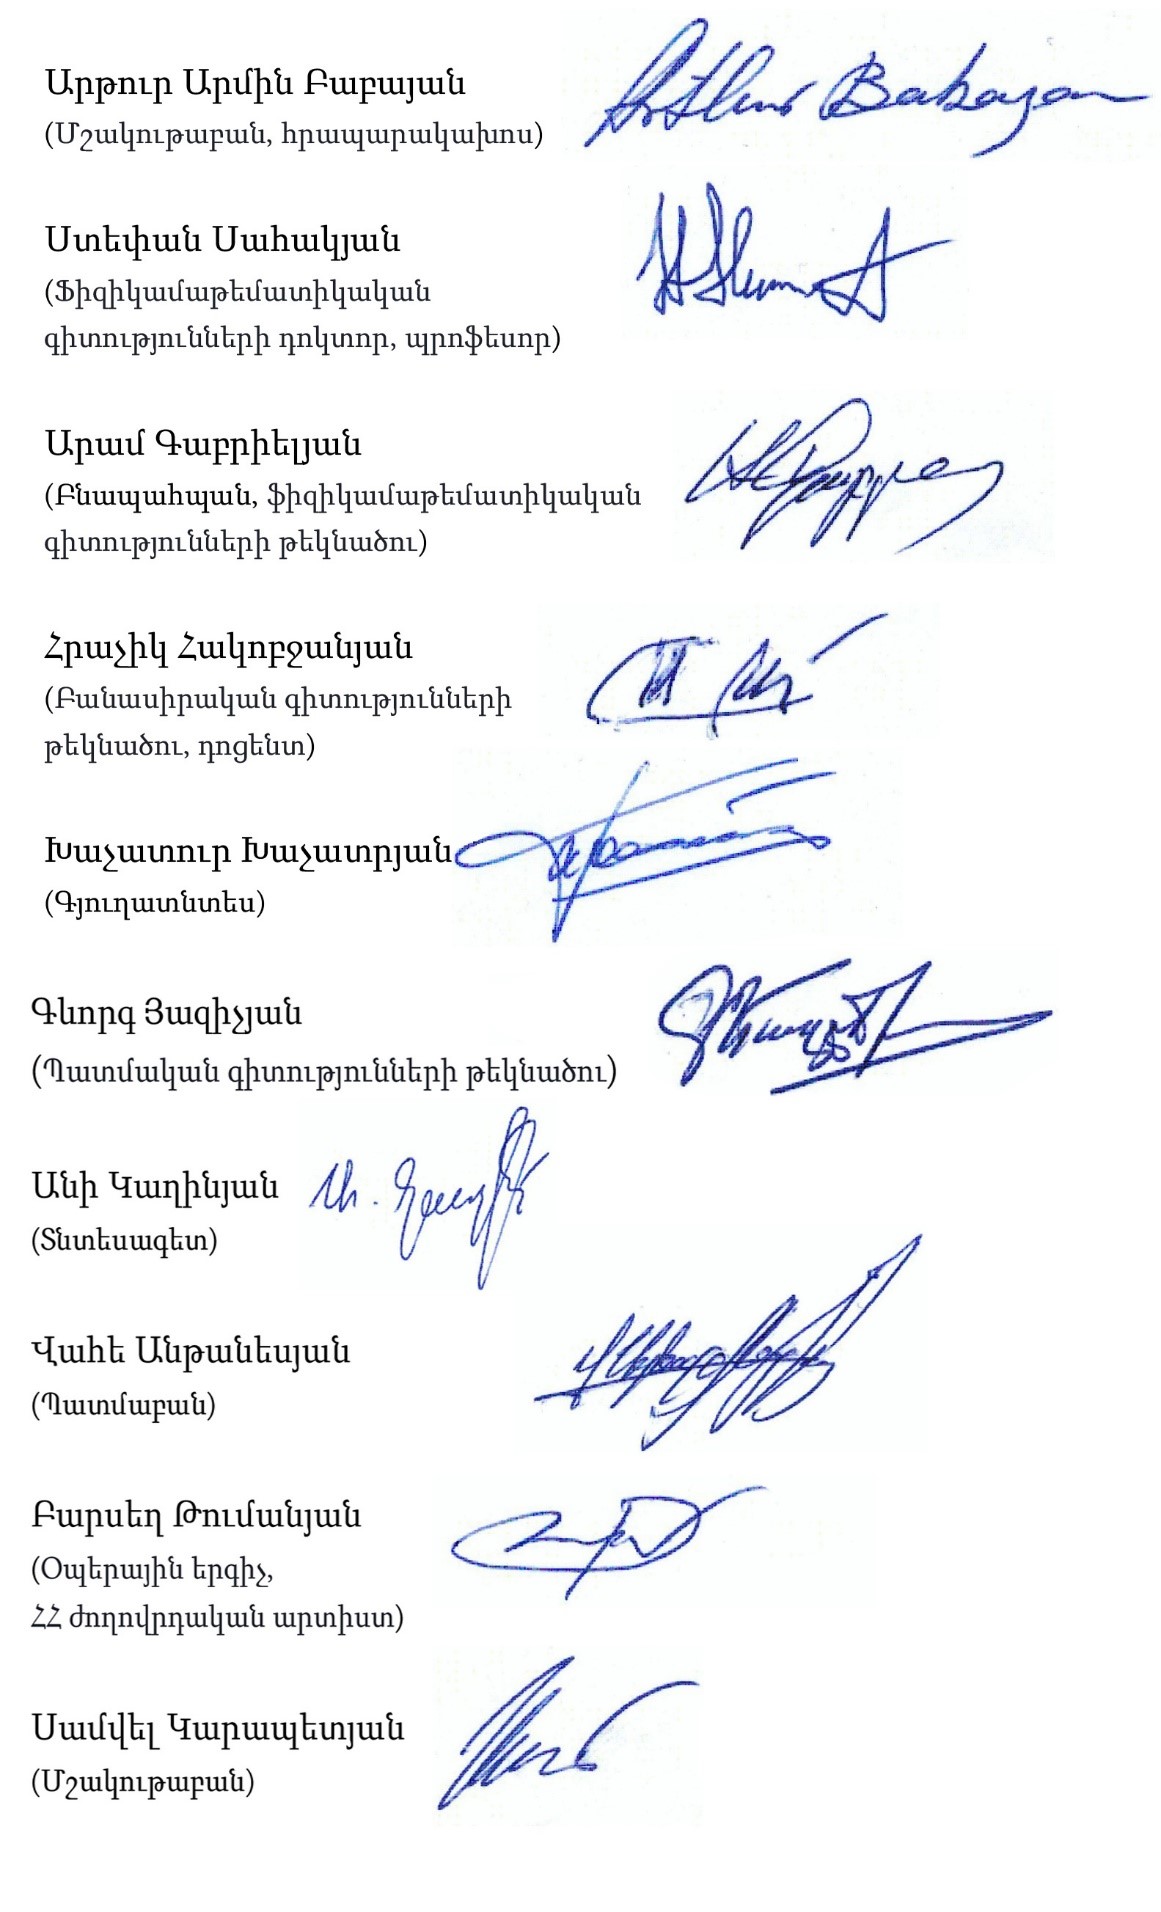 Արթուր Արմին Բաբայան
(Մշակութաբան, հրապարակախոս)
Arthur Babayan
Ստեփան Սահակյան
(Ֆիզիկամաթեմատիկական
գիտությունների դոկտոր, պրոֆեսոր)
Արամ Գաբրիելյան
(Բնապահպան, ֆիզիկամաթեմատիկական
գիտությունների թեկնածու)
Հրաչիկ Հակոբջանյան
(Բանասիրական գիտությունների
թեկնածու, դոցենտ)
Խաչատուր Խաչատրյան
(Գյուղատնտես)
Գևորգ Յազիչյան
(Պատմական գիտությունների թեկնածու)
Անի Կաղինյան
(Տնտեսագետ)
Վահե Անթանեսյան
(Պատմաբան)
Բարսեղ Թումանյան
(Օպերային երգիչ,
ՀՀ ժողովրդական արտիստ)
Սամվել Կարապետյան
(Մշակութաբան)